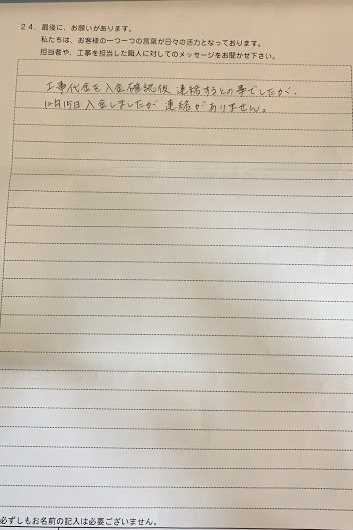 24．最後に、お願いがあります。
私たちは、お客様の一つ一つの言葉が日々の活力となっております。
担当者や、工事を担当した職人に対してのメッセージをお聞かせ下さい。
工事代金を入金確認後 連絡するとの事でしたが、
12月15日入金しましたが 連絡がありません。
必ずしもお名前の記入は必要ございません。